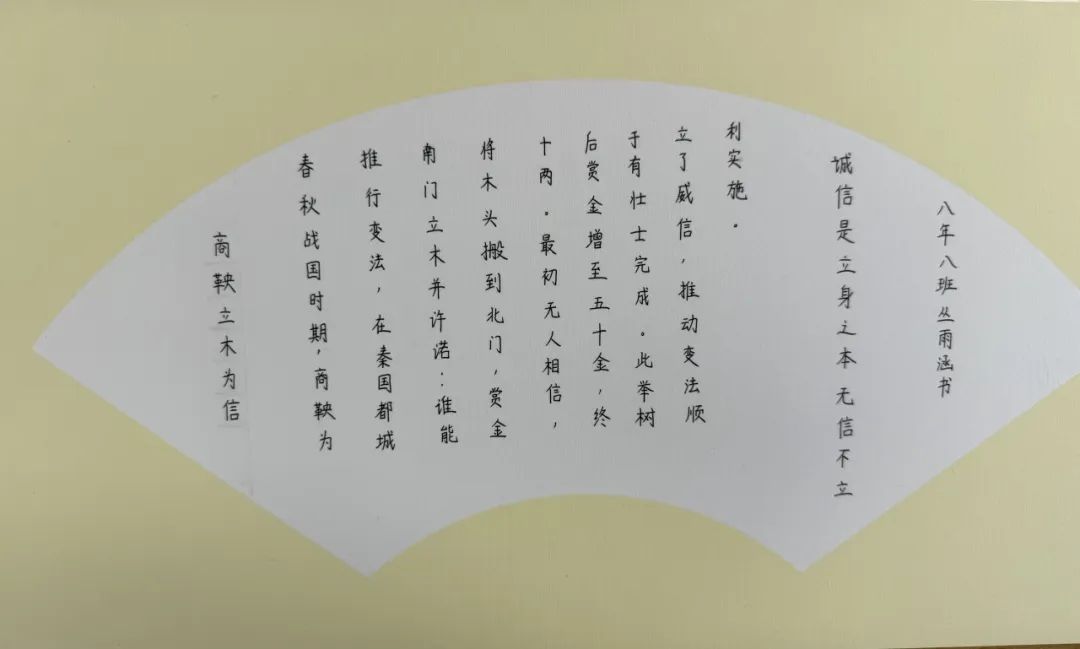 商鞅立木为信
春秋战国时期，商鞅为
推行变法，在秦国都城
南门立木并许诺：谁能
将木头搬到北门，赏金
十两。最初无人相信，
后赏金增至五十金，终
于有壮士完成。此举树
立了威信，推动变法顺
利实施。
诚信是立身之本 无信不立
八年八班丛雨涵书